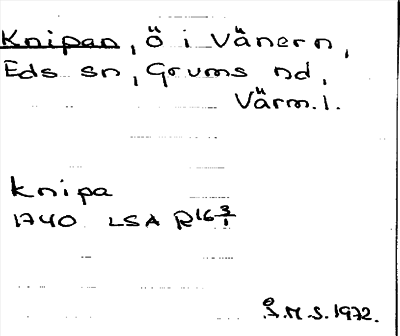 Knipan, ö i Vänern,
Eds sn, Grums hd,
Värm. l.
Knipa
1740 LSA R16 3/1
Å.M.S. 1972.